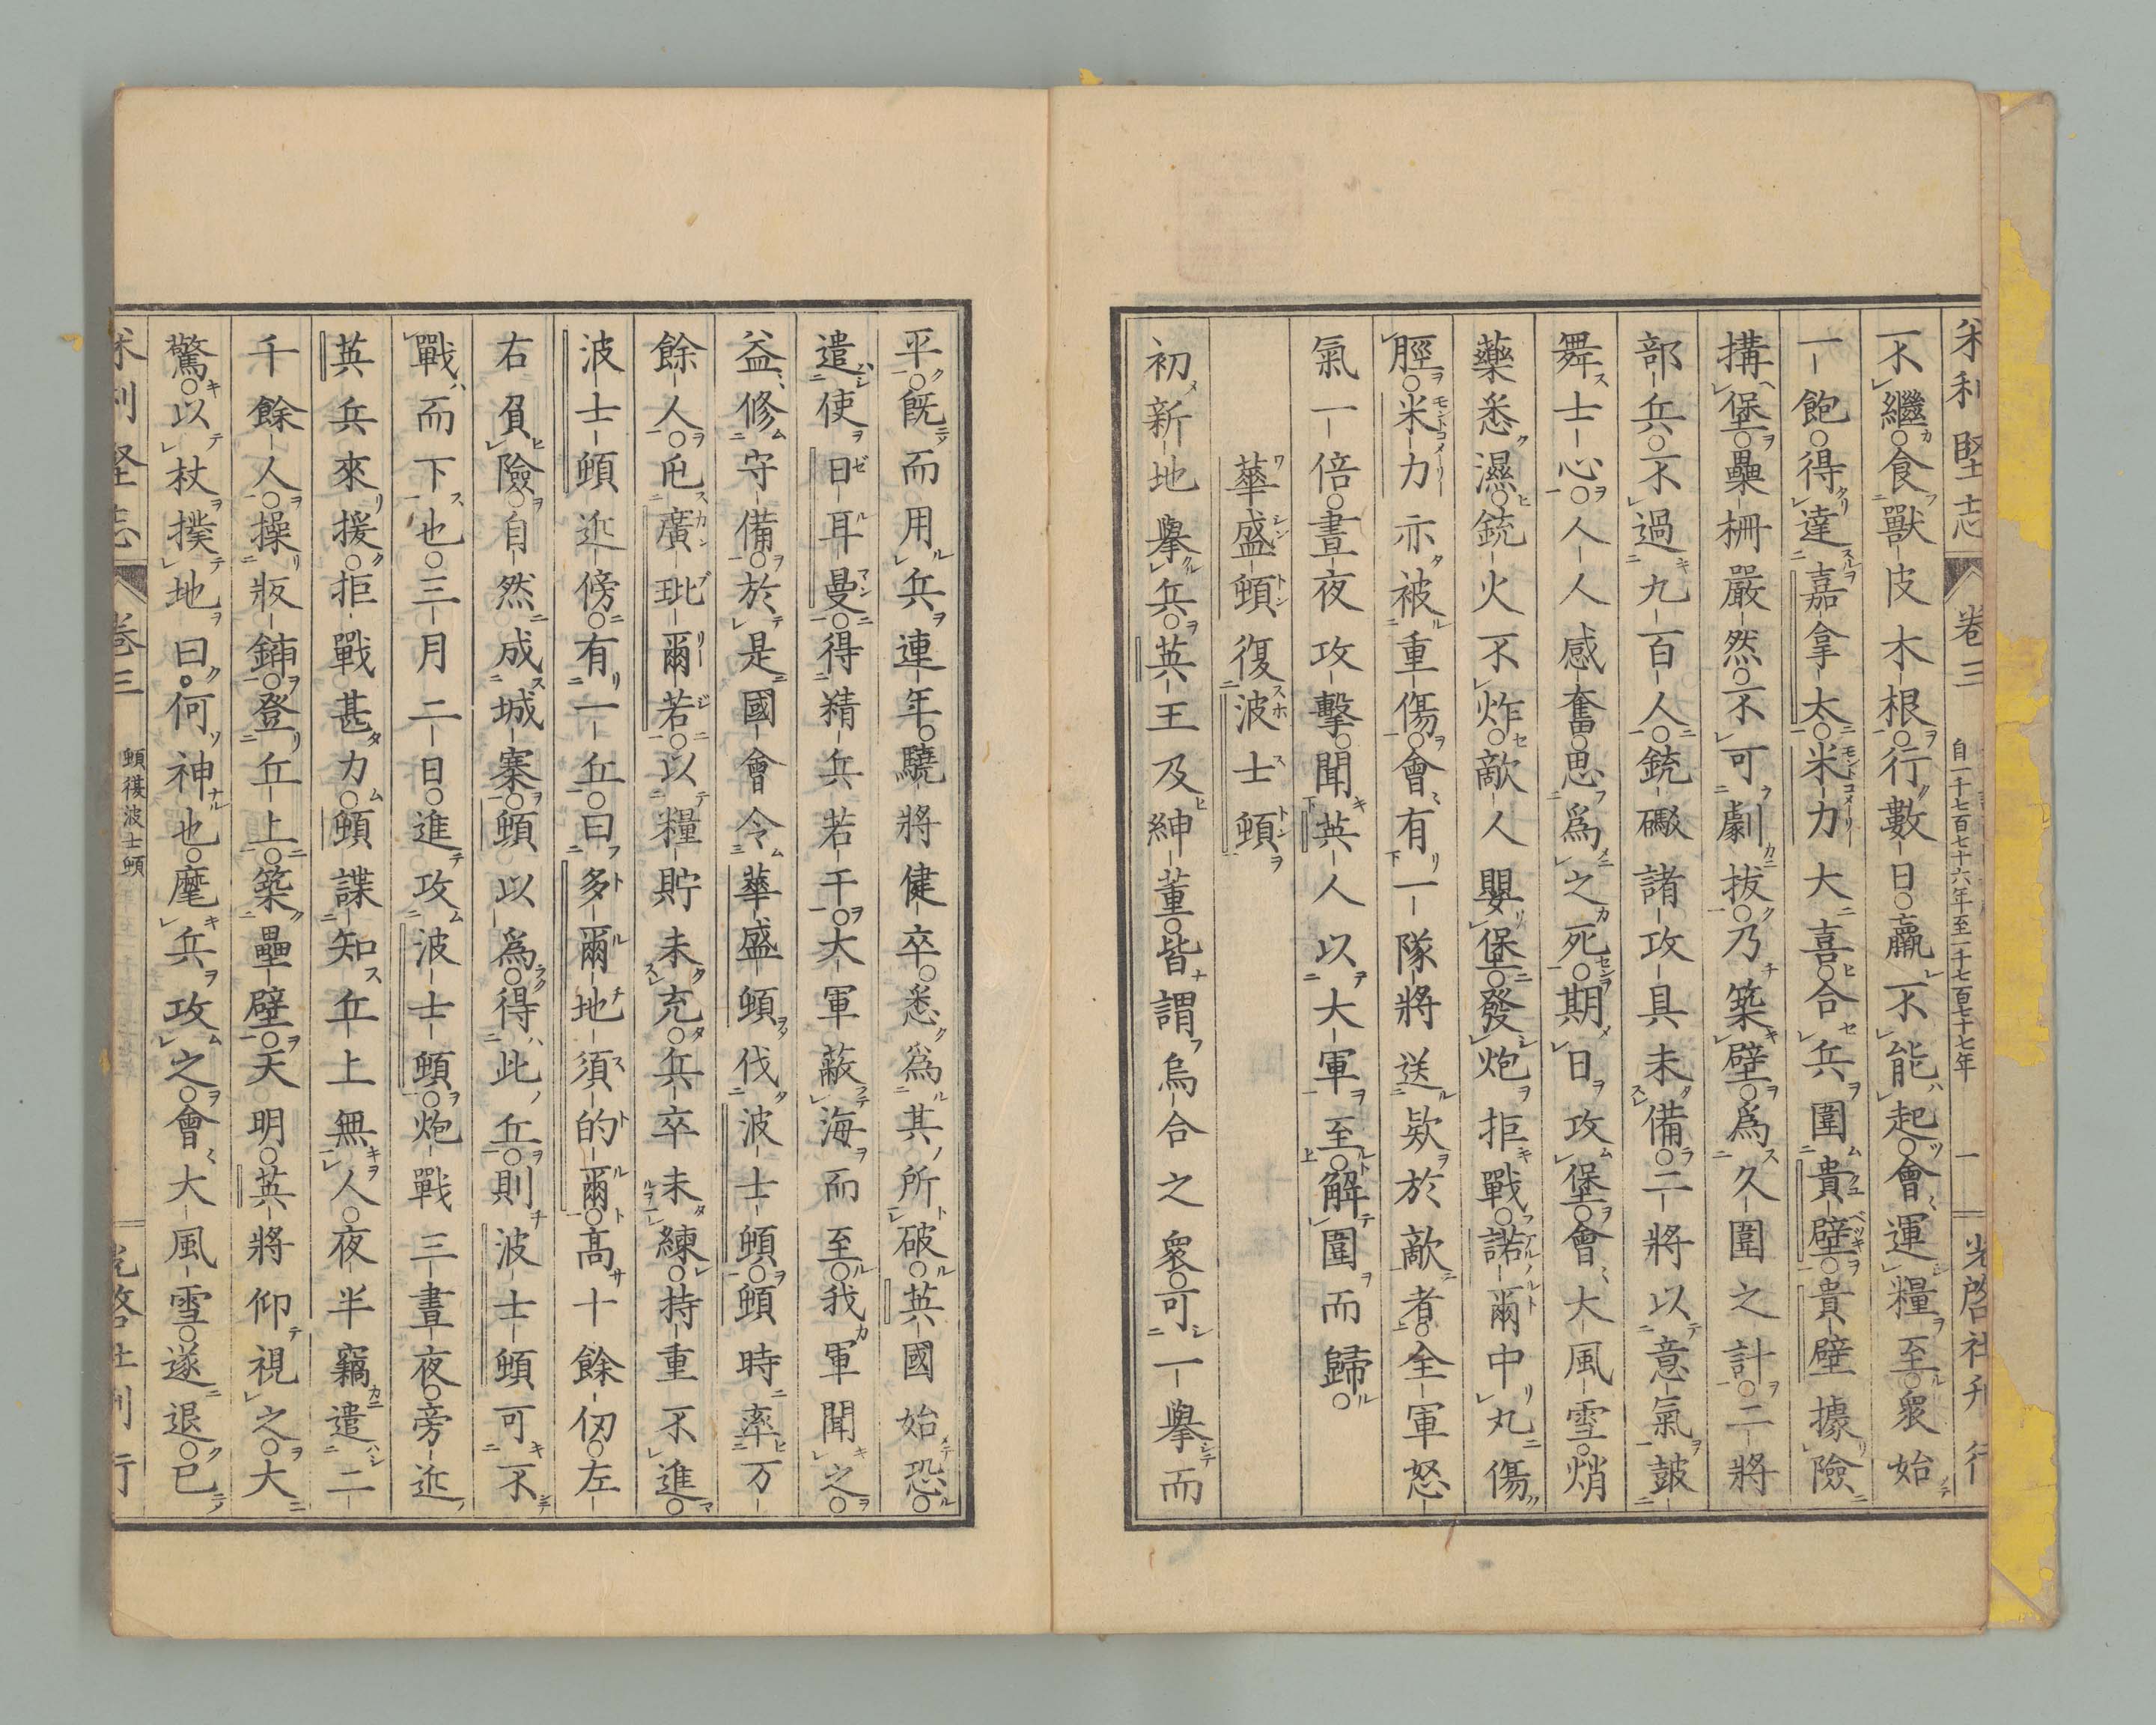 米利堅志 卷三 自一千七百七十六年至一千七百七十七年 一 光啓社刊行
不繼。食獸皮木根。行數日。羸不能起。會運糧至。衆始
一飽。得達嘉拿太。米力大喜。合兵圍貴壁。貴壁據險
搆堡。壘柵嚴然。不可劇拔。乃築壁。爲久圍之計。二將
部兵。不過九百人。銃礮諸攻具未備。二將以意氣鼓
舞士心。人人感奮。思爲之死。期日攻堡。會大風雪。焇
藥悉濕。銃火不炸。敵人嬰堡。發炮拒戰。諾爾中丸傷
脛。米力亦被重傷。會有一隊將送欵於敵者。全軍怒
氣一倍。晝夜攻擊。聞英人以大軍至。解圍而歸。
華盛頓復波士頓
初新地擧兵。英王及紳董。皆謂烏合之衆。可一擧而
平。旣而用兵連年。驍將健卒。悉爲其所破。英國始恐。
遣使日耳曼。得精兵若干。大軍蔽海而至。我軍聞之。
益修守備。於是國會令華盛頓伐波士頓。頓時率万
餘人。屯廣玭爾若。以糧貯未充。兵卒未練。持重不進。
波士頓近傍。有一丘。曰多爾地須的爾。高十餘仞。左
右負險。自然成城寨。頓以爲。得此丘。則波士頓可不
戰而下也。三月二日。進攻波士頓。炮戰三晝夜。旁近
英兵來援。拒戰甚力。頓諜知丘上無人。夜半竊遣二
千餘人。操版鍤。登丘上。築壘壁。天明。英將仰視之。大
驚。以杖撲地曰。何神也。麾兵攻之。會大風雪。遂退。已
米利堅志 卷三 頓復波士頓 光啓社刊行